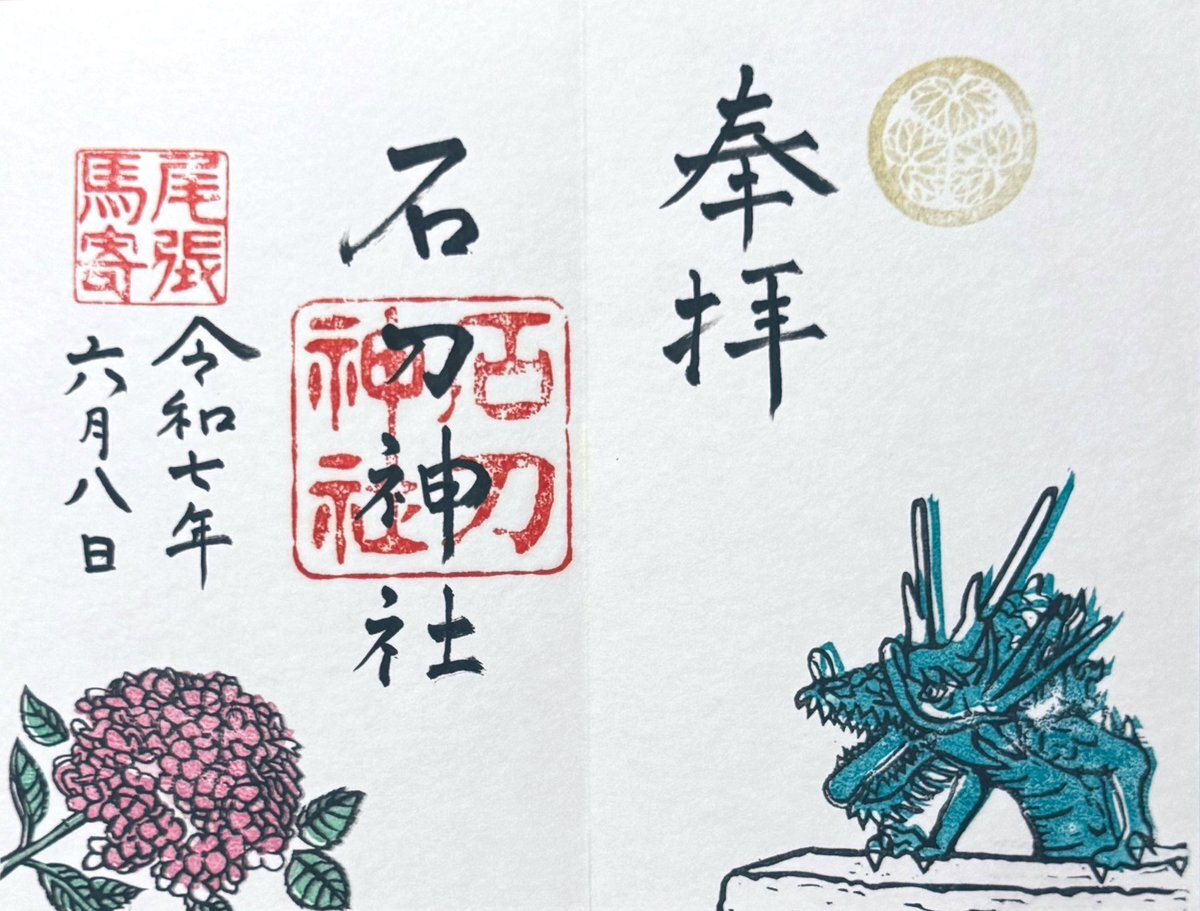 奉拝
石刀神社
石刀
神社
尾張
馬寄
令和七年
六月八日